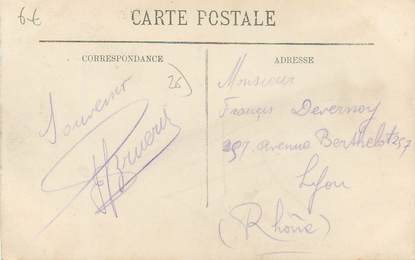 6€
CARTE POSTALE
CORRESPONDANCE
ADRESSE
26
Souvenir
Monsieur
Francis Devernoy
257 avenue Berthelot 257
Lyon
(Rhône)